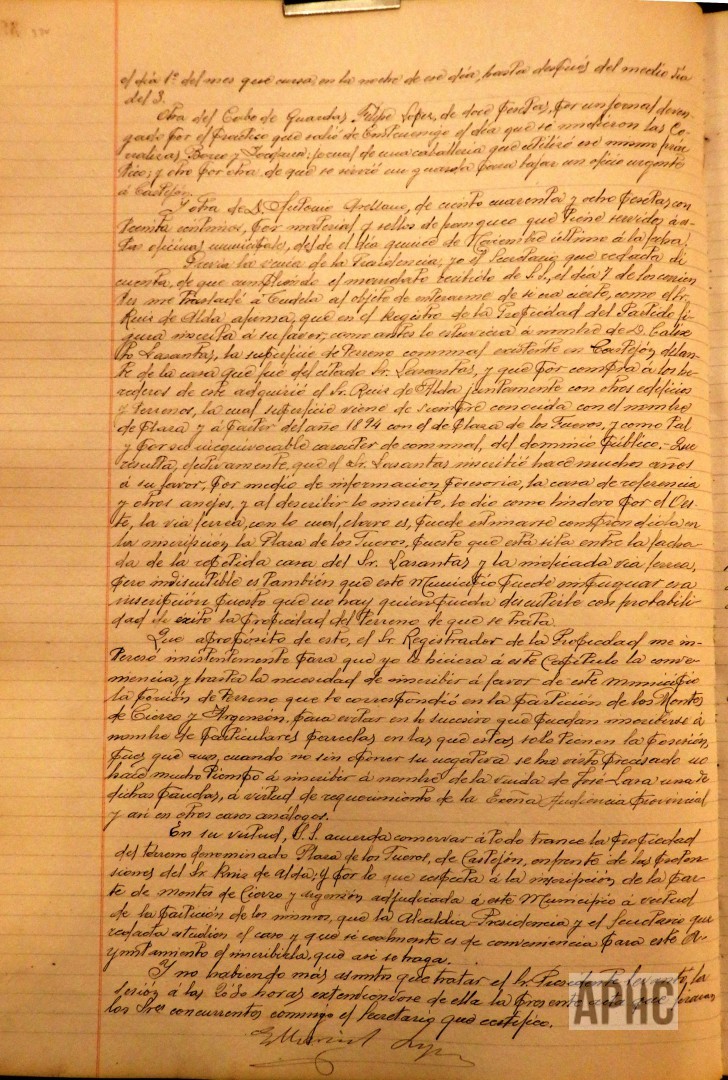 el día 1º del mes que cursa, en la noche de ese día, hasta después del medio día
del 3.
Otra del Cabo de Guardas Felipe López, de doce pesetas, por un jornal deven-
gado por el práctico que salió de el día que se midieron las Co-
rralizas y ; jornal de una caballería que utilizó ese mismo prác-
tico; y otro por otra de que se sirvió un guarda para bajar un oficio urgente
á Castejón.
Y otra de D. Antonio Arellano, de ciento cuarenta y ocho pesetas con
treinta céntimos, por material y sellos de franqueo que tiene servidos á es-
tas oficinas municipales, desde el día quince de Noviembre último á la fecha.
Previa la venia de la Presidencia, yo el Secretario que redacta di
cuenta, de que cumpliendo el mandato recibido de S.S., el día 7 de los corrien-
tes me trasladé á Tudela al objeto de enterarme de si era cierto, como el Sr.
Ruiz de Alda afirma, que en el Registro de la Propiedad del Partido fi-
gura inscrita á su favor, como antes lo estuviera á nombre de D. Calix-
to Lasantas, la superficie de terreno comunal existente en Castejón delan-
te de la casa que fué del citado Sr. Lasantas, y que por compra á los he-
rederos de este adquirió el Sr. Ruiz de Alda juntamente con otros edificios
y terrenos, la cual superficie viene de siempre conocida con el nombre
de Plaza y á partir del año 1894 con el de Plaza de los Fueros, y como tal
y por su inequivocable carácter de comunal, del dominio público.- Que
resulta, efectivamente, que el Sr. Lasantas inscribió hace muchos años
á su favor, por medio de información posesoria, la casa de referencia
y otros anejos, y al describir lo inscrito, le dio como lindero por el Oes-
te, la vía férrea, con lo cual, claro es, puede estimarse comprendida en
la inscripción la Plaza de los Fueros, puesto que está sita entre la facha-
da de la repetida casa del Sr. Lasantas y la indicada vía férrea,
pero indiscutible es también que este Municipio puede impugnar esa
inscripción, puesto que no hay quien pueda discutirle con probabili-
dad de éxito la propiedad del terreno de que se trata.
Que apropósito de esto, el Sr. Registrador de la Propiedad me in-
teresó insistentemente para que yo lo hiciera á este Capítulo la conve-
niencia, y hasta la necesidad de inscribir á favor de este municipio
la porción de terreno que le correspondió en la partición de los Montes
de Cierzo y Argenzón, para evitar en lo sucesivo que puedan inscribirse á
nombre de particulares parcelas en las que estos solo tienen la posesión,
pues que aun cuando no sin oponer su negativa se ha visto precisado no
hace mucho tiempo á inscribir á nombre de la viuda de José Lasa una de
dichas parcelas, á virtud de requerimiento de la Exçma Audiencia Provincial
y así en otros casos análogos.
En su virtud, S.S. acuerda conservar á todo trance la propiedad
del terreno denominado Plaza de los Fueros, de Castejón, enfrente de las preten-
siones del Sr. Ruiz de Alda; y por lo que respecta á la inscripción de la par-
te de montes de Cierzo y Argenzón adjudicada á este Municipio á virtud
de la partición de los mismos, que la Alcaldía Presidencia y el Secretario que
redacta estudien el caso y que si realmente es de conveniencia para este A-
yuntamiento el inscribirla, que así se haga.
Y no habiendo más asuntos que tratar el Sr. Presidente levantó la
sesión á las 20'30 horas extendiéndose de ella la presente acta que firman
los Sres. concurrentes conmigo el Secretario que certifico.
АРНС